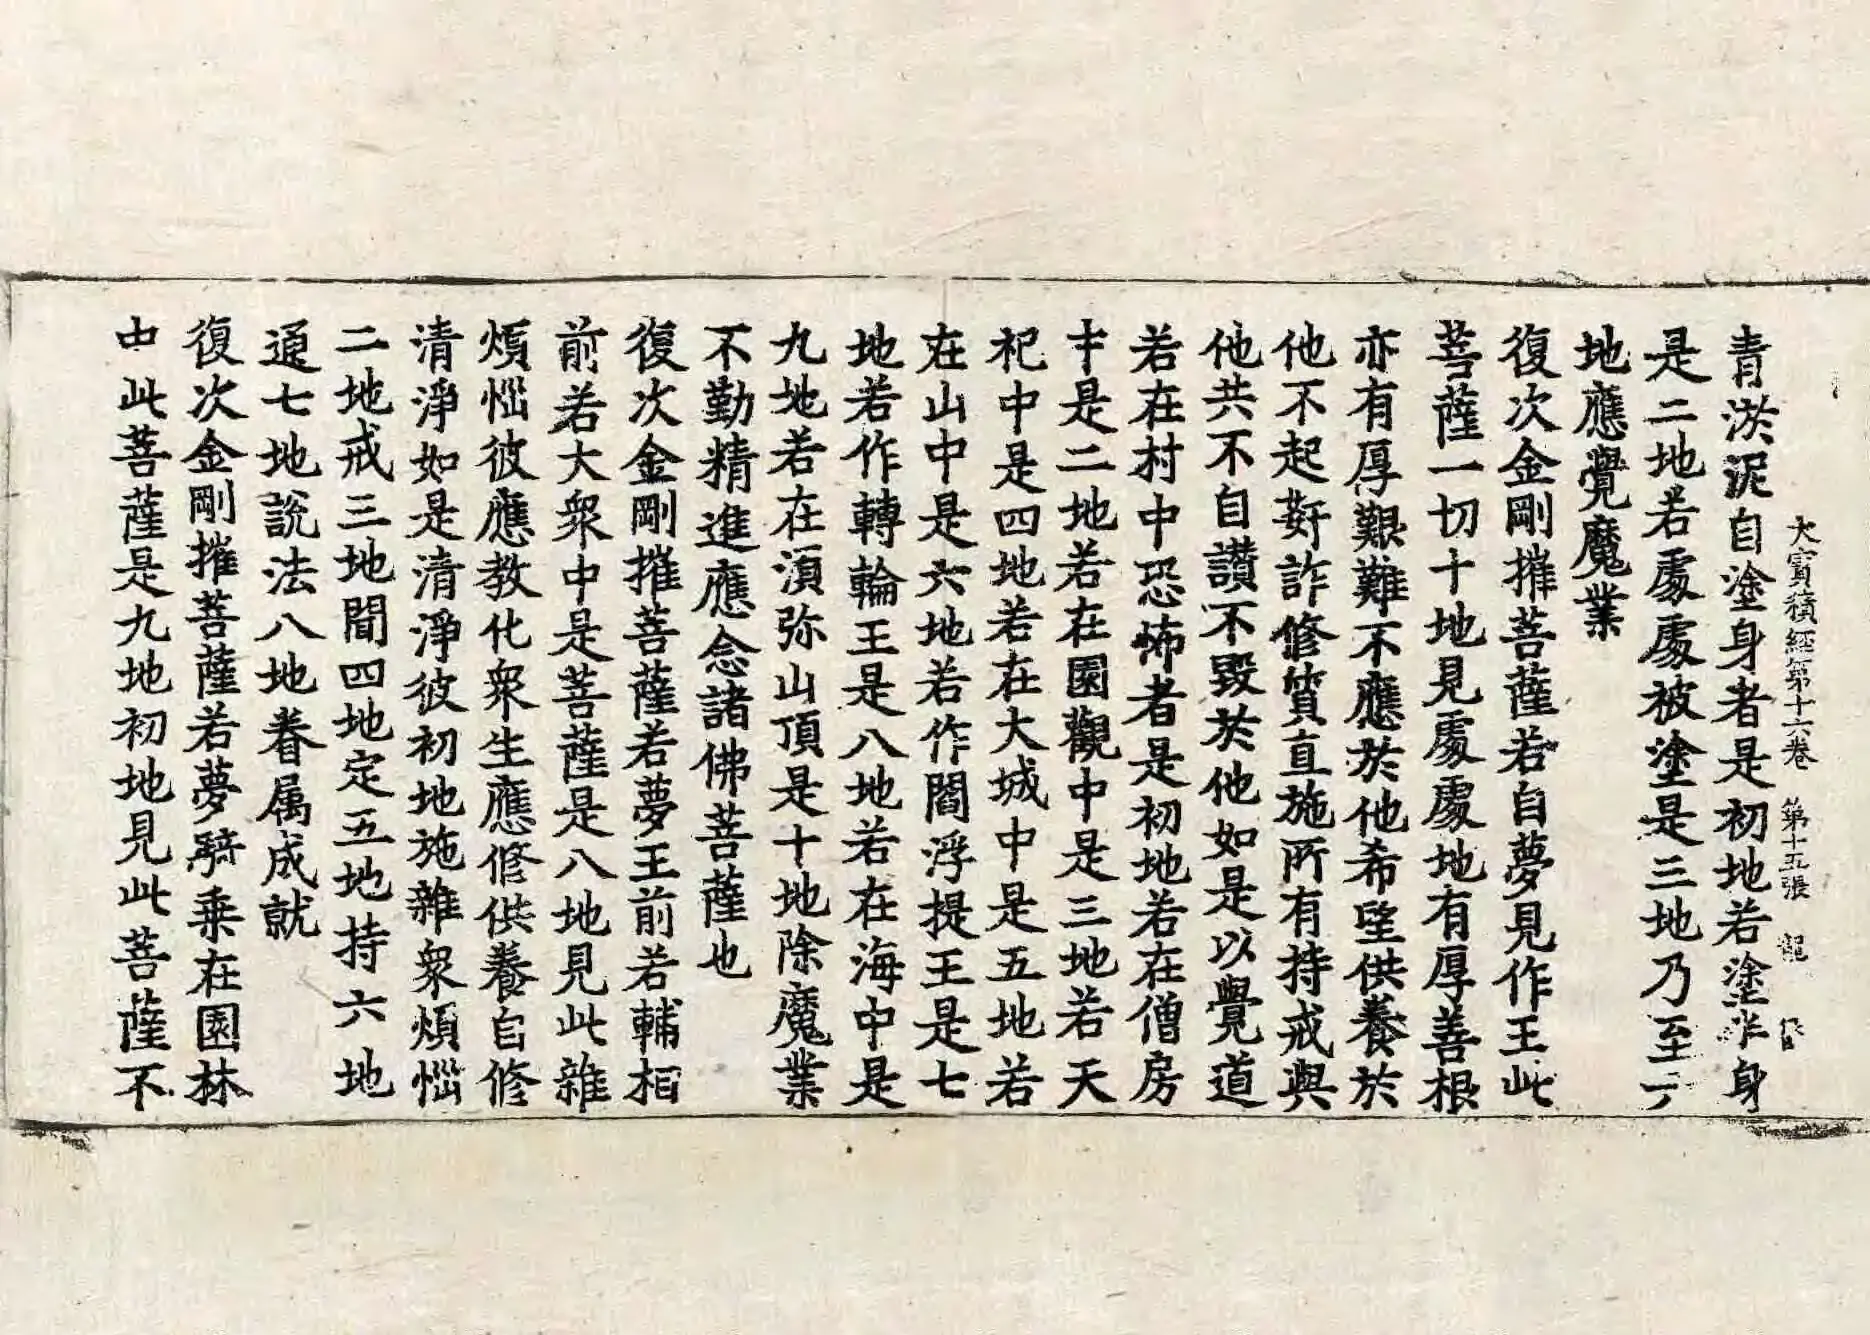 大寶積經第十六卷 第十五張 龍
青淤泥自塗身者是初地若塗半身
是二地若處處被塗是三地乃至
地應覺魔業
復次金剛摧菩薩若自夢見作王此
菩薩一切十地見處處地有厚善根
亦有厚艱難不應於他希望供養於
他不起姧詐修質直施所有持戒與
他共不自讚不毀於他如是以覺道
若在村中恐怖者是初地若在僧房
中是二地若在園觀中是三地若天
祀中是四地若在大城中是五地若
在山中是六地若作閻浮提王是七
地若作轉輪王是八地若在海中是
九地若在湏弥山頂是十地除魔業
不勤精進應念諸佛菩薩也
復次金剛摧菩薩若夢王前若輔相
前若大衆中是菩薩是八地見此雜
煩惱彼應教化衆生應修供養自修
清淨如是清淨彼初地施雜衆煩惱
二地戒三地聞四地定五地持六地
通七地說法八地眷属成就
復次金剛摧菩薩若夢騎乗在園林
中此菩薩是九地初地見此菩薩不